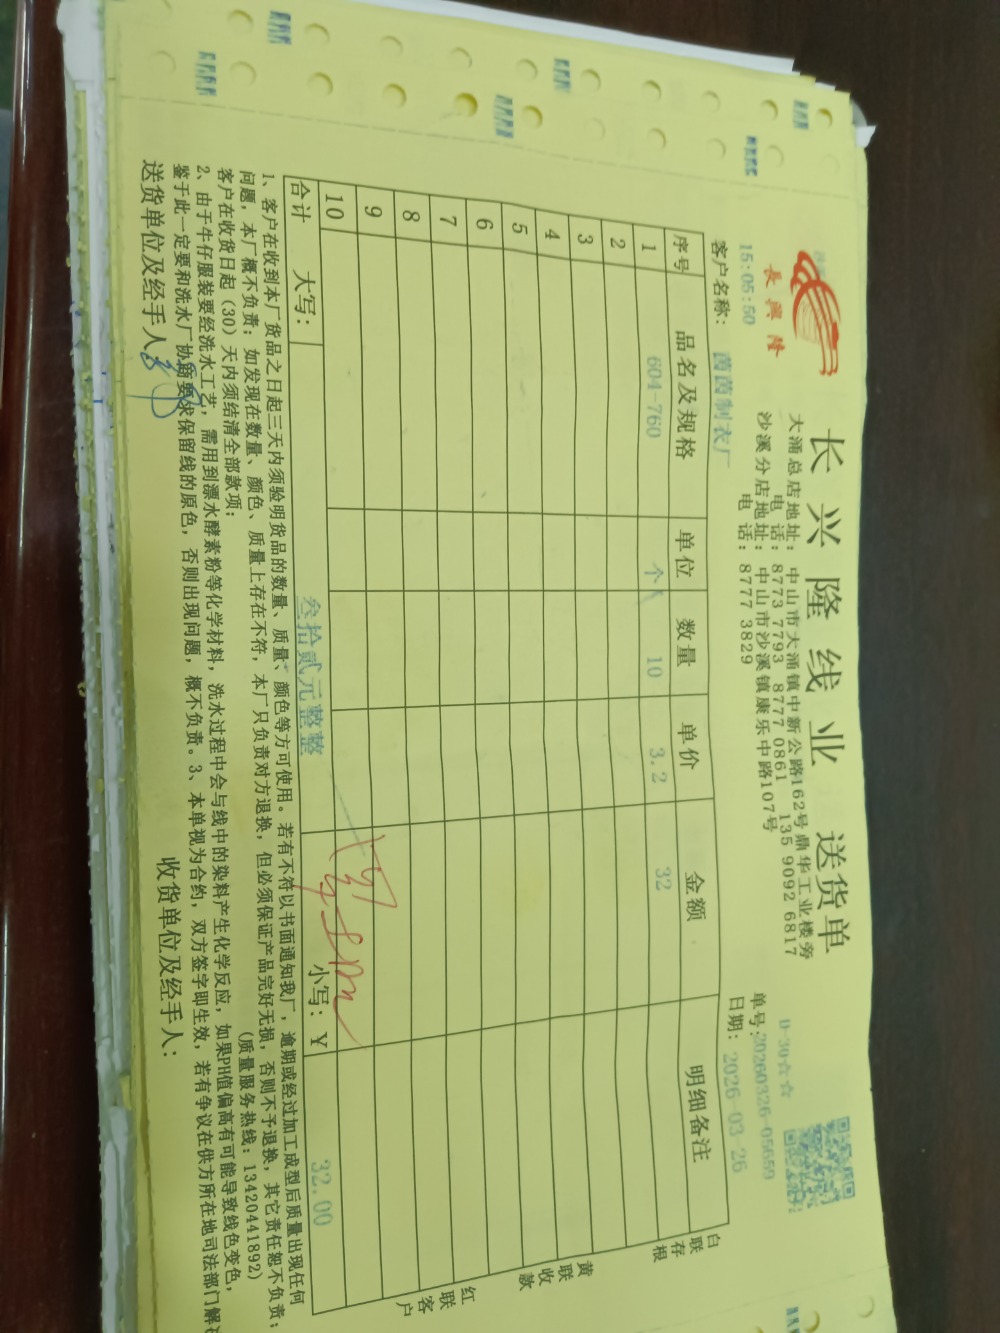 長興隆
长兴隆线业 送货单
大涌总店地址：中山市大涌镇中新公路162号鼎华工业楼旁
电话：8773 7793 8777 0861 135 9092 6817
沙溪分店地址：中山市沙溪镇康乐中路107号
电话：8777 3829
D-30☆☆
单号:20260326-05650
15:05:50
客户名称： 茵茵制衣厂
日期：2026-03-26
序号 品名及规格 单位 数量 单价 金额 明细备注
1 604-760 个 10 3.2 32
2
3
4
5
6
7
8
9
10
合计 大写： 叁拾贰元整整 小写：¥ 32.00
白联存根
黄联收款
红联客户
1、客户在收到本厂货品之日起三天内须验明货品的数量、质量、颜色等方可使用。若有不符以书面通知我厂，逾期或经过加工成型后质量出现任何
问题，本厂概不负责；如发现在数量、颜色、质量上存在不符，本厂只负责对方退换，但必须保证产品完好无损，否则不予退换，其它责任恕不负责；
客户在收货日起（30）天内须结清全部款项； （质量服务热线：13420441892）
2、由于牛仔服装要经洗水工艺，需用到漂水酵素粉等化学材料，洗水过程中会与线中的染料产生化学反应，如果PH值偏高有可能导致线色变色，
鉴于此一定要和洗水厂协商要求保留线的原色，否则出现问题，概不负责。3、本单视为合约，双方签字即生效，若有争议在供方所在地司法部门解
送货单位及经手人： 收货单位及经手人：